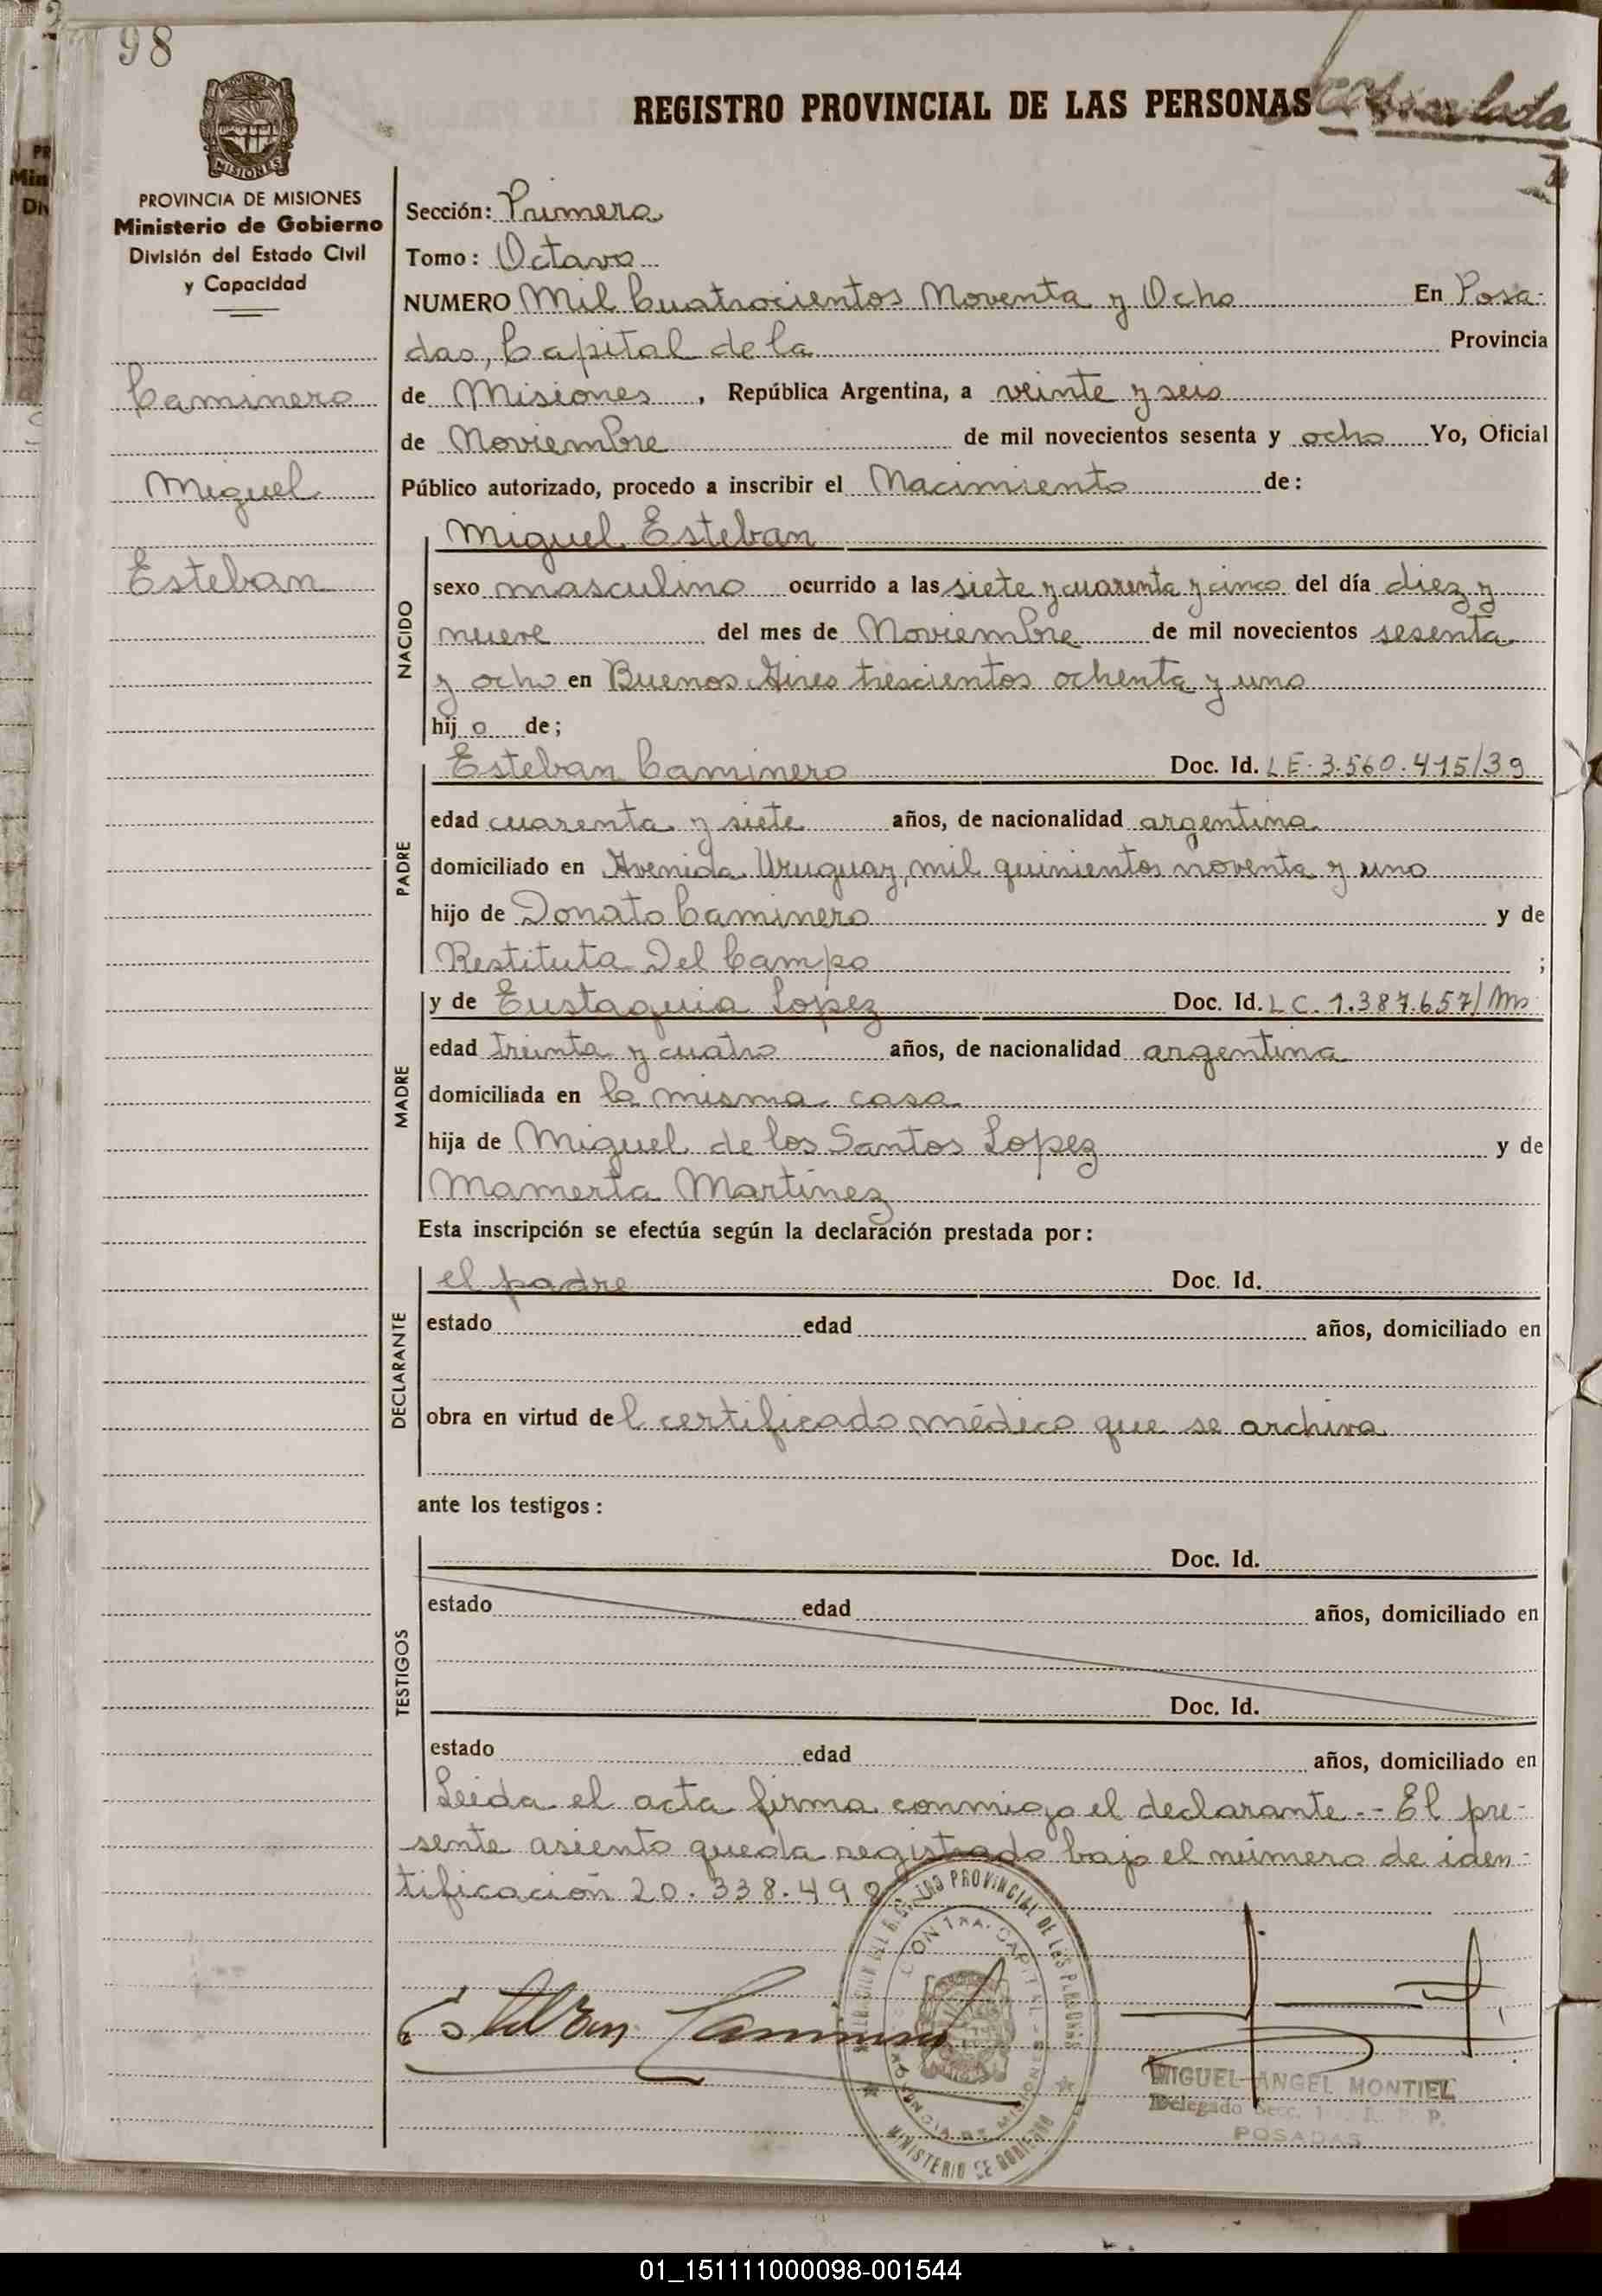 98
PROVINCIA DE
MISIONES
REGISTRO PROVINCIAL DE LAS PERSONAS
PROVINCIA DE MISIONES
Ministerio de Gobierno
División del Estado Civil
y Capacidad
Caminero
Miguel
Esteban
Sección: Primera
Tomo: Octavo
NUMERO Mil Cuatrocientos Noventa y Ocho En Posa-
das, Capital de la Provincia
de Misiones, República Argentina, a veinte y seis
de Noviembre de mil novecientos sesenta y ocho Yo, Oficial
Público autorizado, procedo a inscribir el Nacimiento de:
NACIDO
Miguel Esteban
sexo masculino ocurrido a las siete y cuarenta y cinco del día diez y
nueve del mes de Noviembre de mil novecientos sesenta
y ocho en Buenos Aires trescientos ochenta y uno
hijo de;
PADRE
Esteban Caminero Doc. Id. L E. 3.560.415/39
edad cuarenta y siete años, de nacionalidad argentina
domiciliado en Avenida Uruguay, mil quinientos noventa y uno
hijo de Donato Caminero y de
Restituta Del Campo ;
MADRE
y de Eustaquia Lopez Doc. Id. L C. 1.387.657/Ms
edad treinta y cuatro años, de nacionalidad argentina
domiciliada en la misma casa
hija de Miguel de los Santos Lopez y de
Mamerta Martinez
Esta inscripción se efectúa según la declaración prestada por:
DECLARANTE
el padre Doc. Id.
estado edad años, domiciliado en
obra en virtud del certificado médico que se archiva
ante los testigos:
TESTIGOS
Doc. Id.
estado edad años, domiciliado en
Doc. Id.
estado edad años, domiciliado en
Leida el acta firma conmigo el declarante.- El pre-
sente asiento queda registrado bajo el número de iden-
tificación 20.338.498
Esteban Caminero
REGISTRO PROVINCIAL DE LAS PERSONAS
MINISTERIO DE GOBIERNO
PROVINCIA DE MISIONES
MIGUEL ANGEL MONTIEL
Delegado Secc. 1ra. R. P. P.
POSADAS
01_151111000098-001544